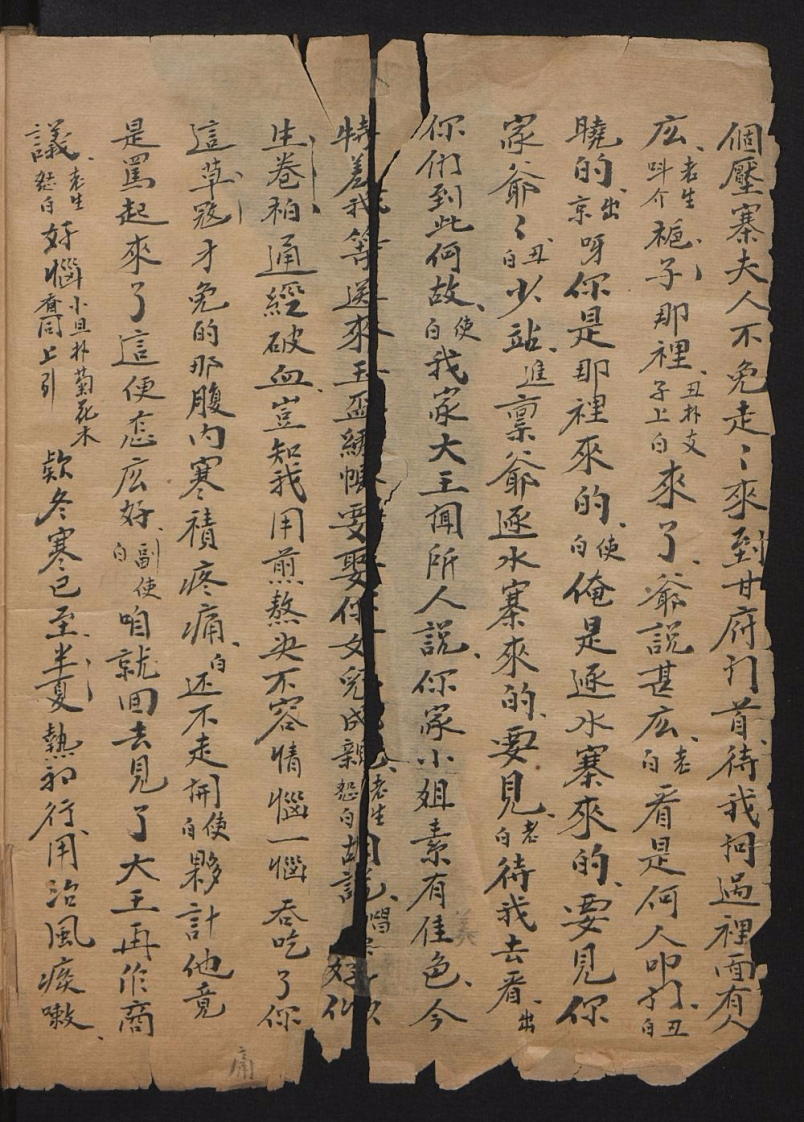 個壓寨夫人不免走〻來到甘府門首待我問過裡面有人
庅老生呌介梔子那裡丑扑支子上白來了爺說甚庅老白看是何人叩門丑白
曉的出京呀你是那裡來的使白俺是逐水寨來的要見你
家爺〻丑白少站進禀爺逐水寨來的要見老白待我去看出
你们到此何故使白我家大王聞所人說你家小姐素有佳色今
特差我等送來玉盃綉帳要娶你女兒成親老生怒白胡說唱
生卷柏通經破血豈知我用煎熬决不容情惱一惱吞吃了你
這草寇才免的那腹内寒積疼痛白还不走開使白夥計他竟
是罵起來了這便怎庅好副使白咱就回去見了大王再作商
議老生怒白好惱小旦扑菊花木香同上引欵冬寒已至半夏熱初行用治風痰嗽
痛